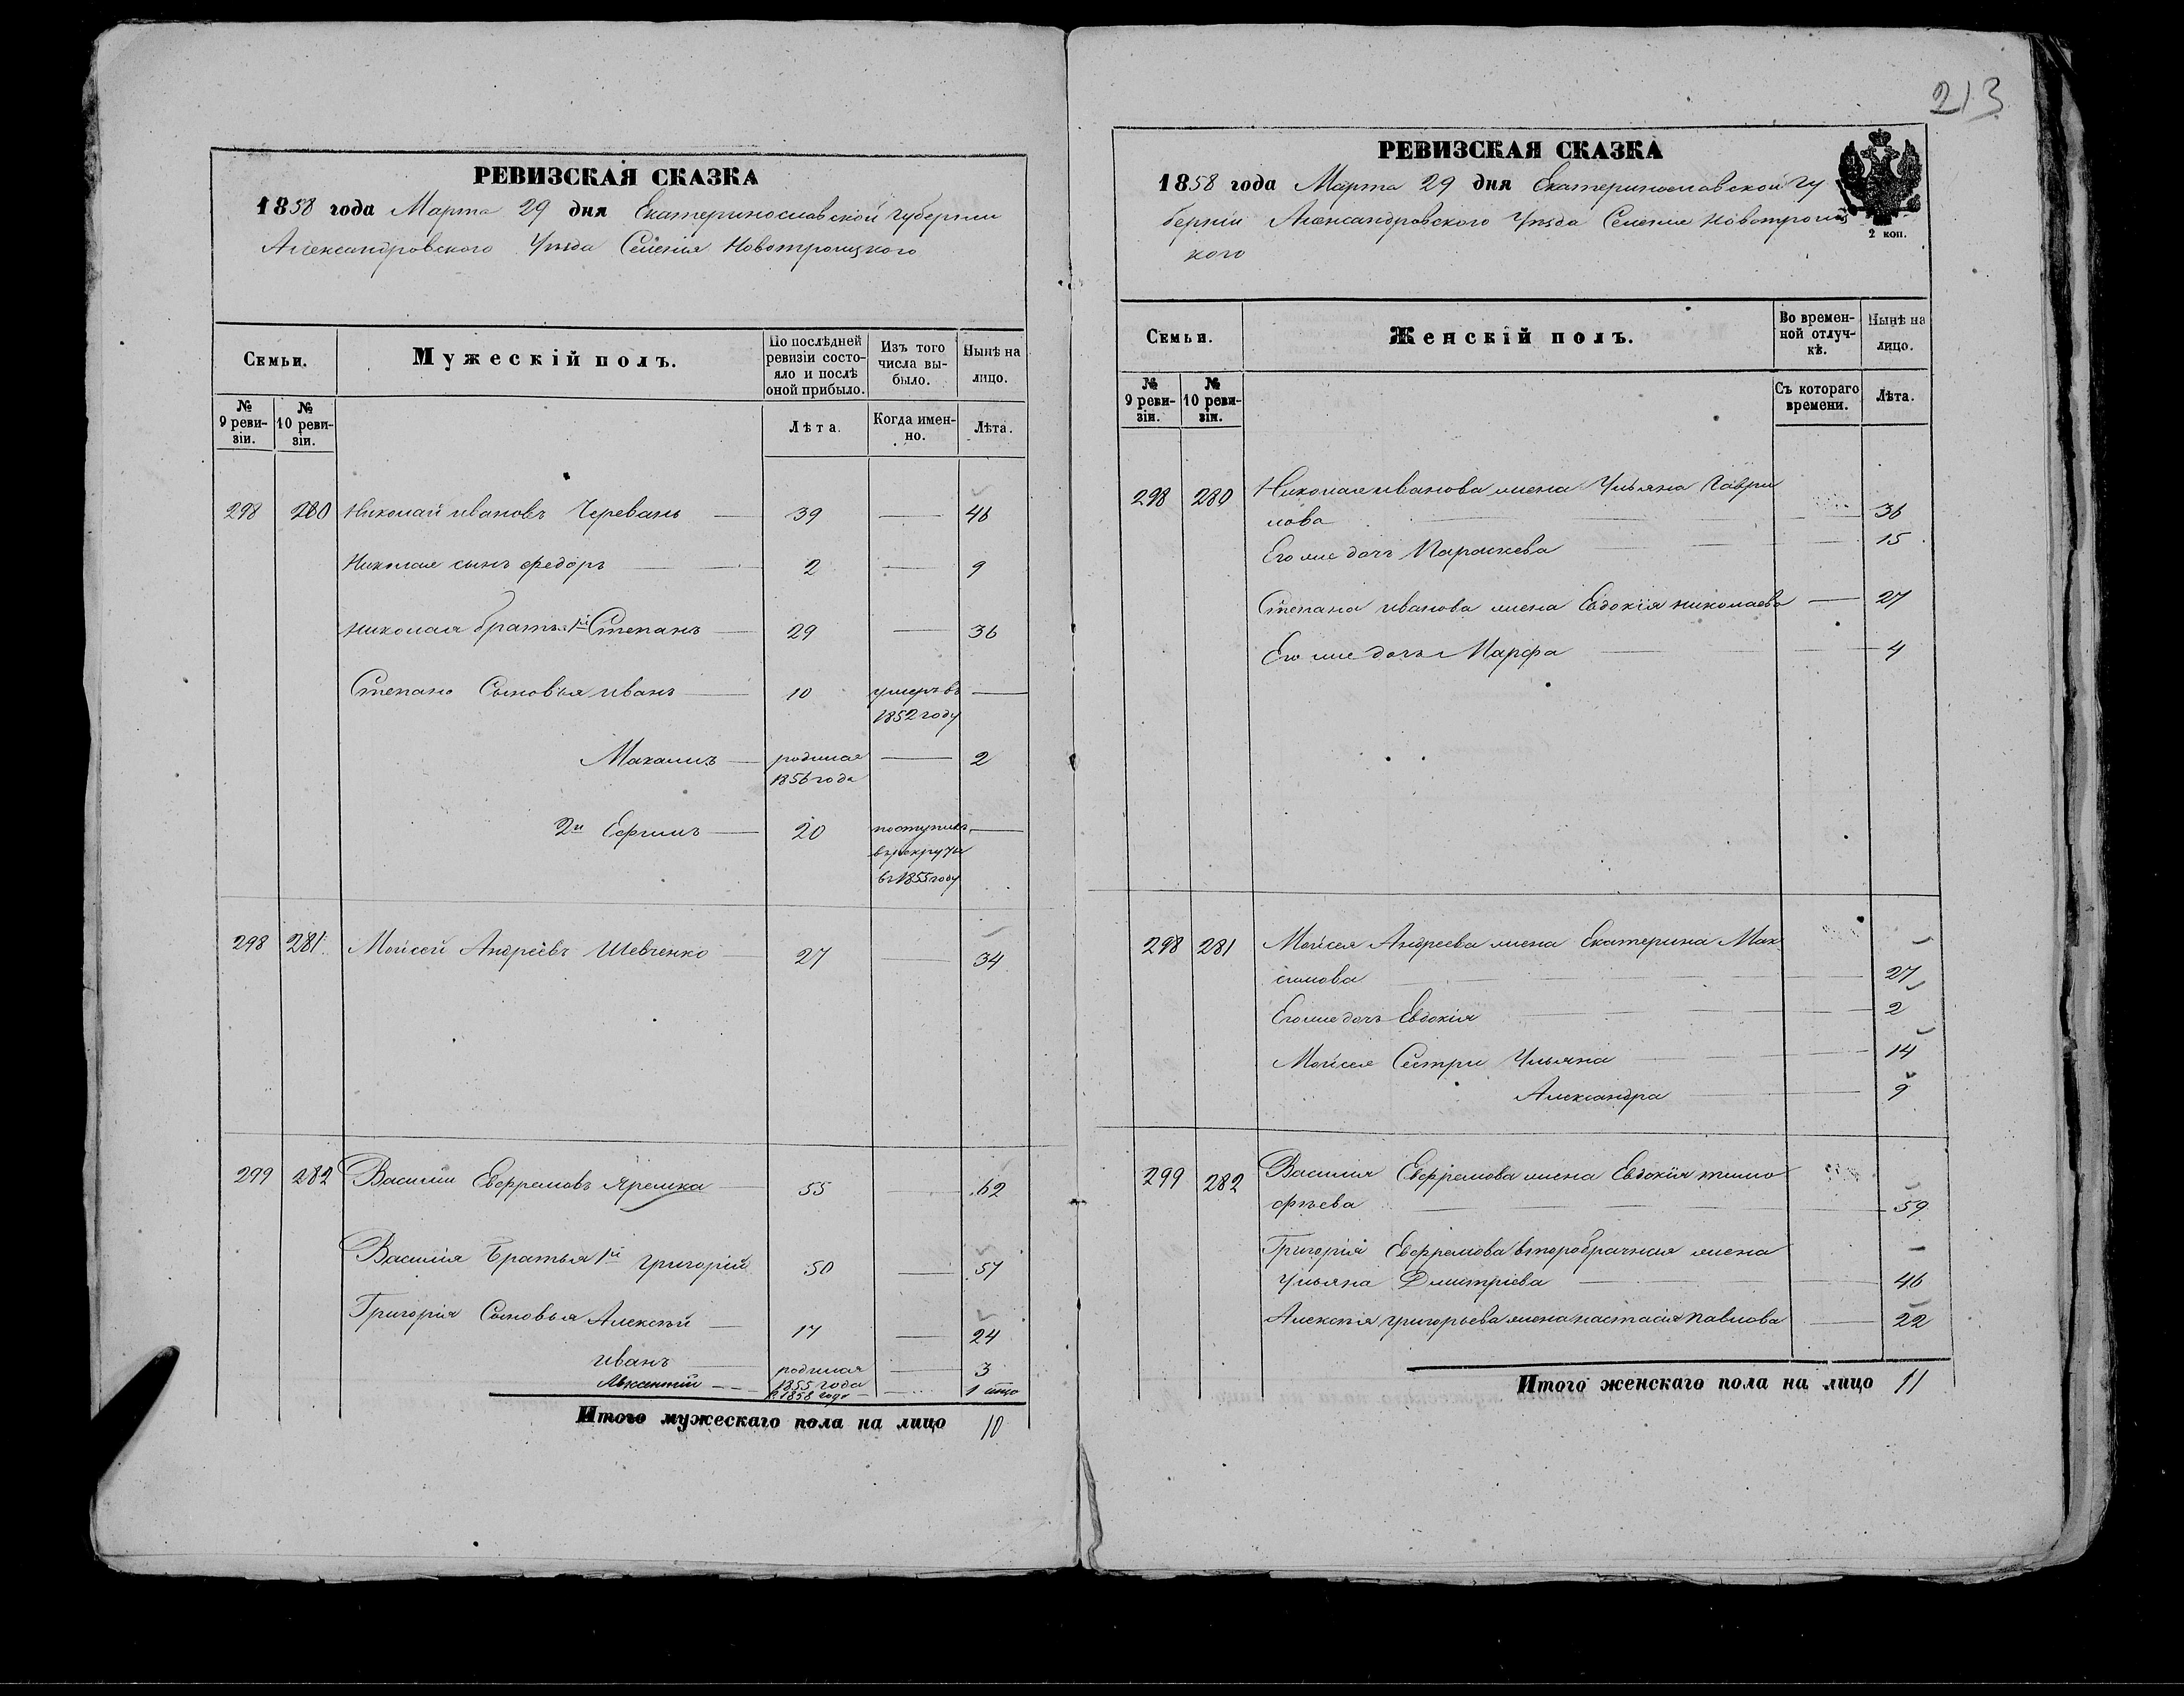 213
РЕВИЗСКАЯ СКАЗКА
1858 года Марта 29 дня Екатеринославской губернии
Александровского Уезда Селения Новотроицкого
Семьи.
Мужескій полъ.
По послѣдней ревизіи состояло и послѣ оной прибыло.
Изъ того числа выбыло.
Нынѣ на лицо.
№ 9 ревизіи.
№ 10 ревизіи.
Лѣта.
Когда именно.
Лѣта.
298 280 Николай ивановъ Черевань 39 — 46
Николая сынъ федоръ 2 — 9
николая братья 1й Степанъ 29 — 36
Степана Сыновья иванъ 10 умеръ въ 1852 году —
Махаилъ родился 1856 года — 2
2й Ефимъ 20 поступилъ в рекруты въ 1855 году —
298 281 Мойсей Андрѣевъ Шевченко 27 — 34
299 282 Василий Евфремовъ Яремка 55 — 62
Василія Братья 1й григорій 50 — 57
Григорія Сыновья Алексѣй 17 — 24
иванъ родился 1855 года — 3
Авксентій 1858 года — 1
Итого мужескаго пола на лицо 10
РЕВИЗСКАЯ СКАЗКА
1858 года Марта 29 дня Екатеринославской гу
берніи Александровского Уѣзда Селения Новотроиц
кого
2 коп.
Семьи.
Женскій полъ.
Во временной отлучкѣ.
Нынѣ на лицо.
№ 9 ревизіи.
№ 10 ревизіи.
Съ котораго времени.
Лѣта.
298 280 Николая иванова жена Ульяна Гаври
лова — 36
Его же дочь Параскева — 15
Степана иванова жена Евдокія николаева — 27
Его же дочь Марфа — 4
298 281 Мойсея Андреева жена Екатерина Мак
симова — 27
Его же дочь Евдокія — 2
Мойсея Сестры Ульяна — 14
Александра — 9
299 282 Василия Евфремова жена Евдокія тимо
фѣева — 59
Григорія Евфремова второбрачная жена
Ульяна Дмитріева — 46
Алексѣя григорьева жена настасія павлова — 22
Итого женскаго пола на лицо 11